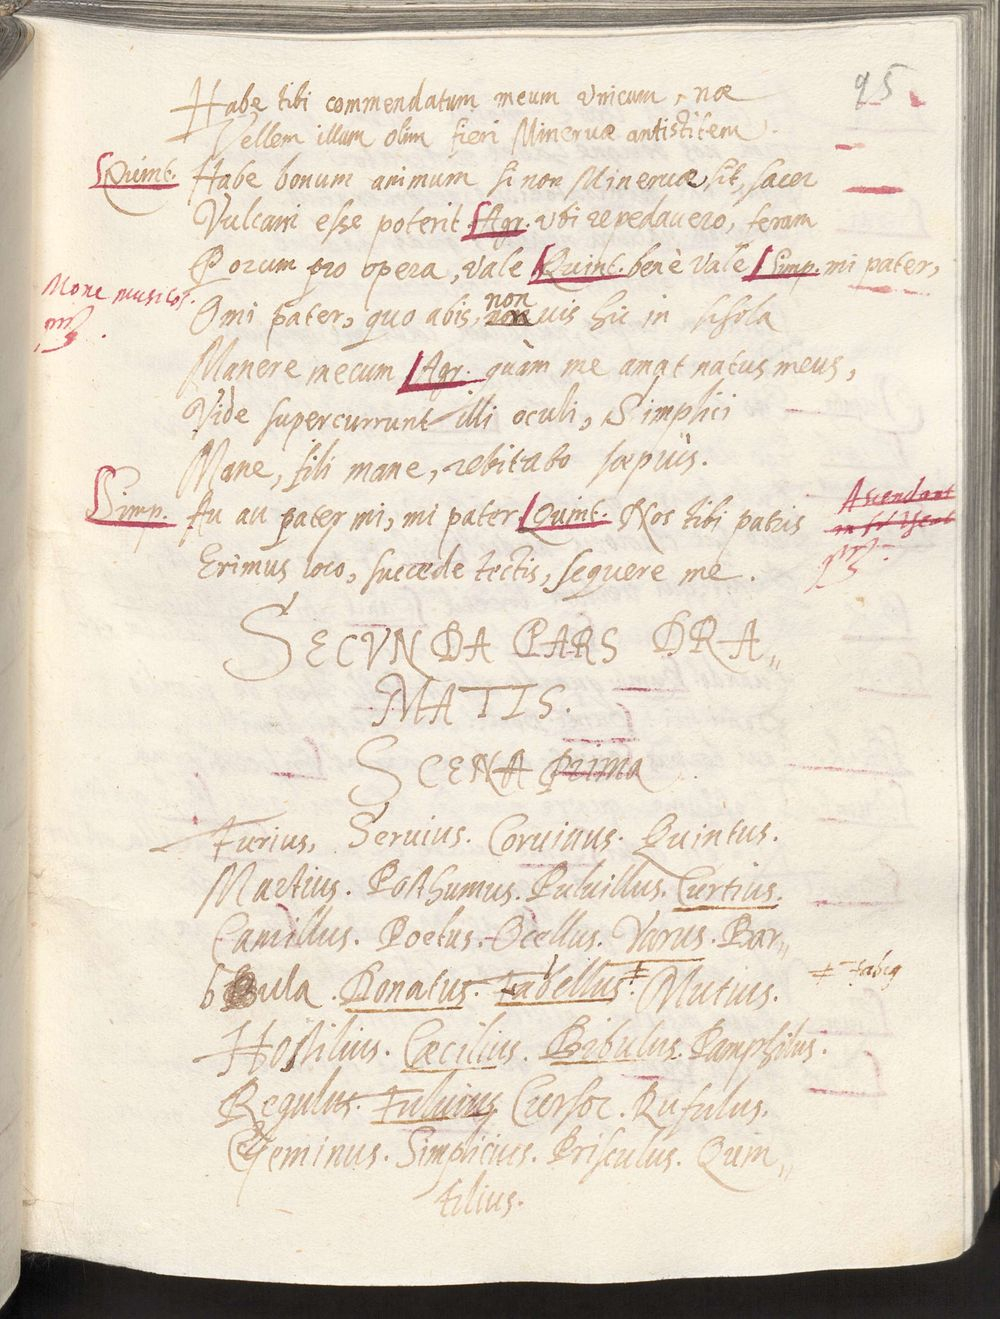 95
Habe tibi commendatum meum vnicum, nae
Vellem illum olim fieri Minervae antistitem.
Quint. Habe bonum animum si non Minervae sit, sacer
Vulcani esse poterit Agr. vbi repedavero, feram
Porum pro opera, vale Quint. benè vale Simp. mi pater,
Mone musicos.
O mi pater, quo abis, non vis hic in schola
Manere mecum Agr. quàm me amat natus meus,
Vide supercurrunt illi oculi, Simplici
Mane, fili mane, rebitabo saepiùs.
Simp. Au au pater mi, mi pater Quint. Nos tibi patris
Ascendant
Erimus loco, succede tectis, sequere me.
SECVNDA PARS DRA„
MATIS.
SCENA Prima
Furius, Servius. Corvinus. Quintus.
Martius. Posthumus. Pulvillus. Curtius.
Camillus. Poetus. Ocellus. Varus. Bar„
bula. Donatus. Fabellus. Mutius.
Hostilius. Caecilius. Bibulus. Pamphilus.
Regulus. Fulvius Cursor. Rufulus.
Geminus. Simplicius. Prisculus. Quin„
tilius.